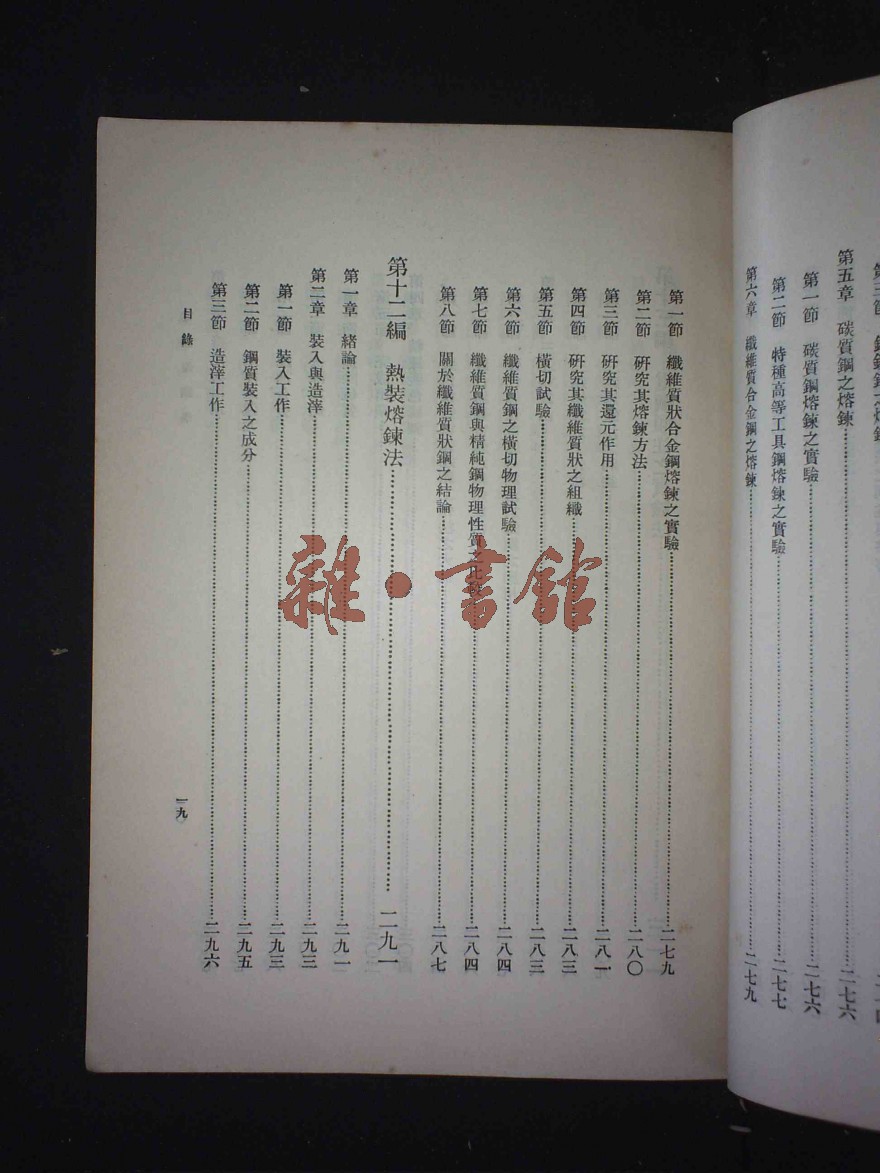 第五章 碳質鋼之熔鍊 二七六
第一節 碳質鋼熔鍊之實驗 二七六
第二節 特種高等工具鋼熔鍊之實驗 二七七
第六章 纖維質合金鋼之熔鍊 二七九
第一節 纖維質狀合金鋼熔鍊之實驗 二七九
第二節 研究其熔鍊方法 二八〇
第三節 研究其還元作用 二八一
第四節 研究其纖維質狀之組織 二八三
第五節 橫切試驗 二八三
第六節 纖維質鋼之橫切物理試驗 二八四
第七節 纖維質鋼與精純鋼物理性質之比較 二八四
第八節 關於纖維質狀鋼之結論 二八七
第十二編 熱裝熔鍊法 二九一
第一章 緒論 二九一
第二章 裝入與造滓 二九三
第一節 裝入工作 二九三
第二節 鋼質裝入之成分 二九五
第三節 造滓工作 二九六
目錄
一九
雜·書館